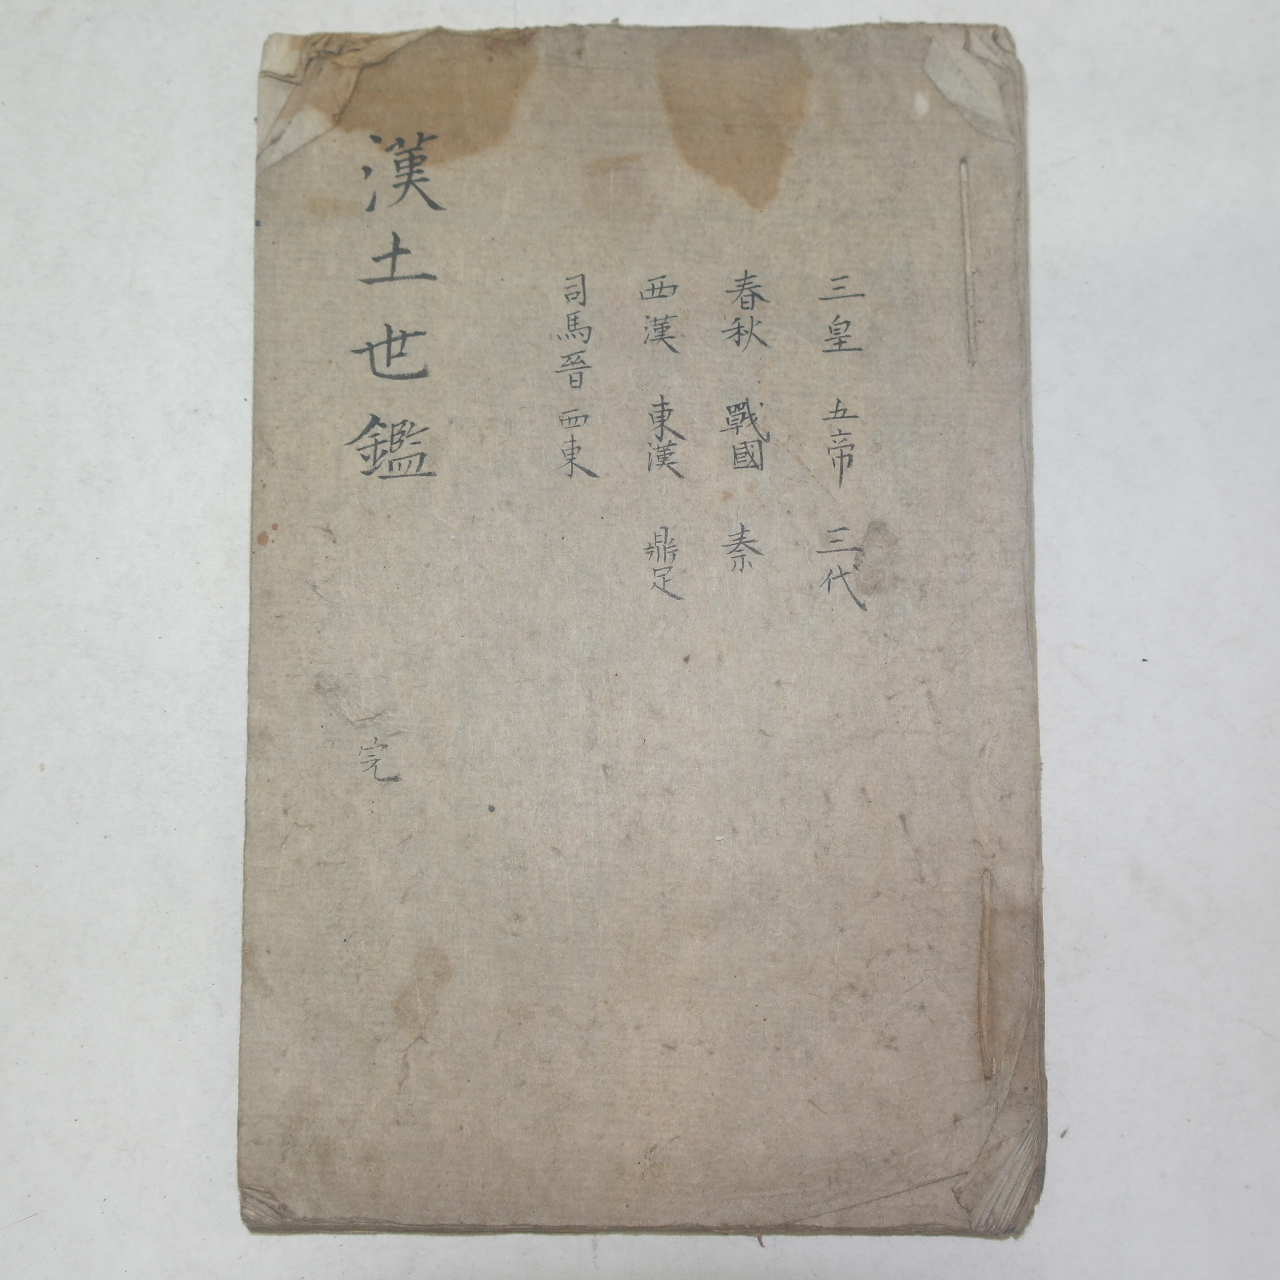 三皇 五帝 三代
春秋 戰國 秦
西漢 東漢 鼎足
司馬晉 西東
漢土世鑑 完